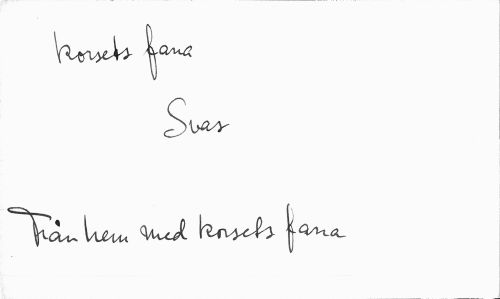 korsets fana
Svas
Från hem med korsets fana